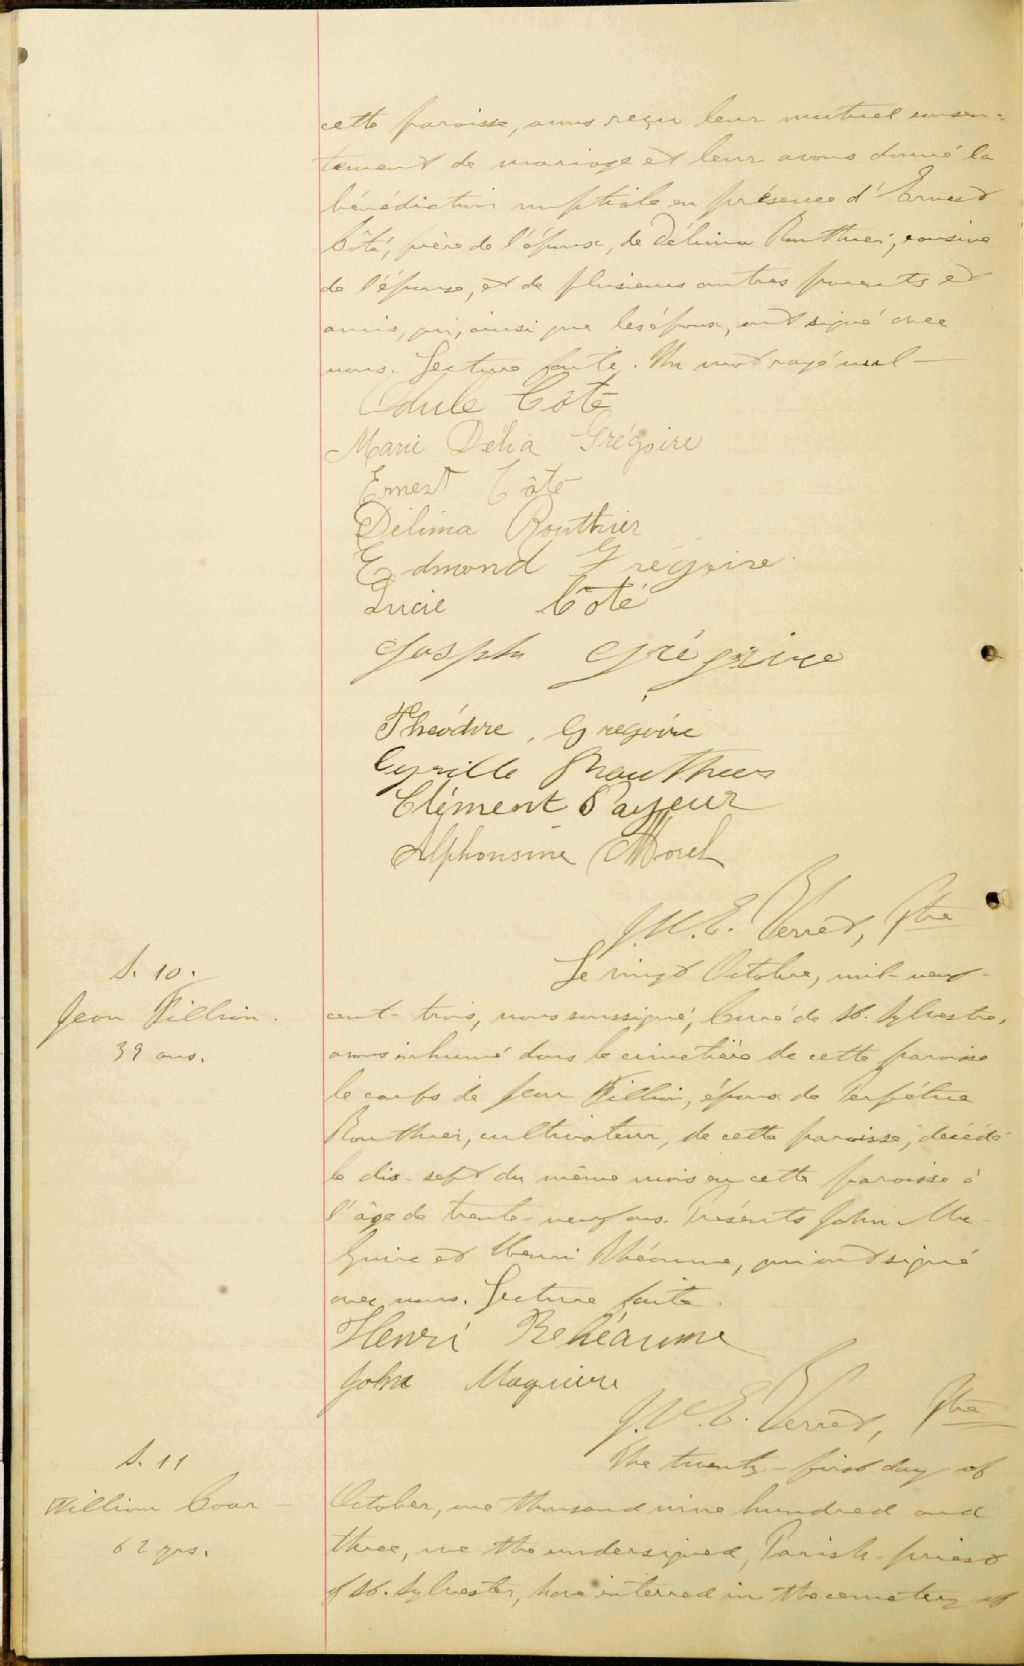 cette paroisse, avons reçu leur mutuel consen=
tement de mariage et leur avons donné la
bénédiction nuptiale en présence d'Ernest
Côté, père de l'époux, de Délima Routhier, cousine
de l'épouse, et de plusieurs autres parents et
amis, qui, ainsi que les époux, ont signé avec
nous. Lecture faite. Un mot rayé nul —
Odule Côté
Marie Délia Grégoire
Ernest Côté
Délima Routhier
Edmond Grégoire
Lucie Côté
Josph Grégoire
Théodore Grégoire
Cyrille Routhier
Clément Payeur
Alphonsine Morel
J. W. E. Verret, Ptre
Le vingt Octobre, mil-neuf-
S. 10.
Jean Fillion.
39 ans.
cent-trois, nous soussigné, Curé de St. Sylvestre,
avons inhumé dans le cimetière de cette paroisse
le corps de Jean Fillion, époux de Perpétue
Routhier, cultivateur, de cette paroisse, décédé
le dix-sept du même mois en cette paroisse à
l'âge de trente-neuf ans. Présents John Ma-
guire et Henri Rhéaume, qui ont signé
avec nous. Lecture faite.
Henri Rehéaume
John Maguire
J. W. E. Verret, Ptre
The twenty-first day of
S. 11
William Cour —
62 yrs.
October, one thousand nine hundred and
three, we the undersigned, Parish-priest
of St. Sylvester, have interred in the cemetery of